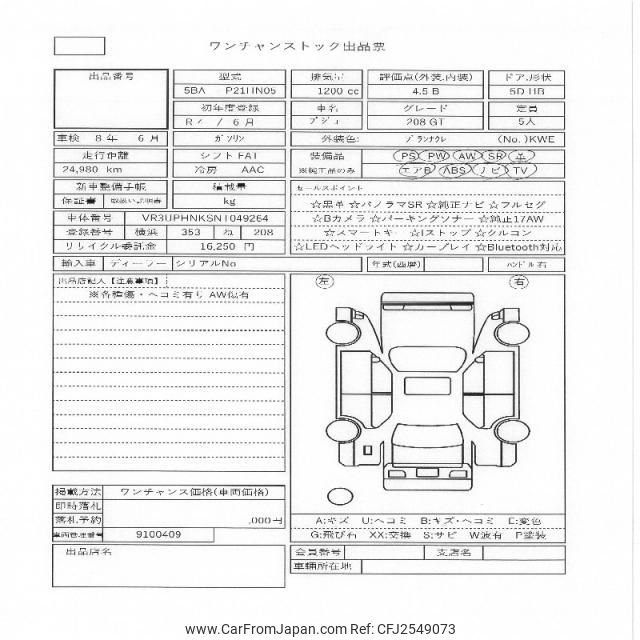 ワンチャンストック出品票
出品番号 型式 排気量 評価点(外装.内装) ドア.形状
5BA P21HN05 1200 cc 4.5 B 5D HB
初年度登録 車名 グレード 定員
R / 6月 プジョ 208 GT 5人
車検 8年 6月 ガソリン 外装色: ブランナクレ (No.)KWE
走行距離 シフト FAT 装備品 PS PW AW SR 革
24,980 km 冷房 AAC ※純正品のみ エアB ABS ナビ TV
新車整備手帳 積載量 セールスポイント
保証書 取扱い説明書 kg ☆黒革 ☆パノラマSR ☆純正ナビ ☆フルセグ
車体番号 VR3UPHNKSN1049264 ☆Bカメラ ☆パーキングソナー ☆純正17AW
登録番号 横浜 353 ね 208 ☆スマートキー ☆Iストップ ☆クルコン
リサイクル委託金 16,250 円 ☆LEDヘッドライト ☆カープレイ ☆Bluetooth対応
輸入車 ディーラー シリアルNo 年式(西暦) ハンドル 右
出品店記入【注意事項】 左 右
※各種傷・ヘコミ有り AW傷有
掲載方法 ワンチャンス価格(車両価格)
即時落札
落札予約 ,000円 A:キズ U:ヘコミ B:キズ・ヘコミ C:変色
車両管理番号 9100409 G:飛び石 XX:交換 S:サビ W波有 P塗装
出品店名 会員番号 支店名
車輌所在地
www.CarFromJapan.com Ref: CFJ2549073